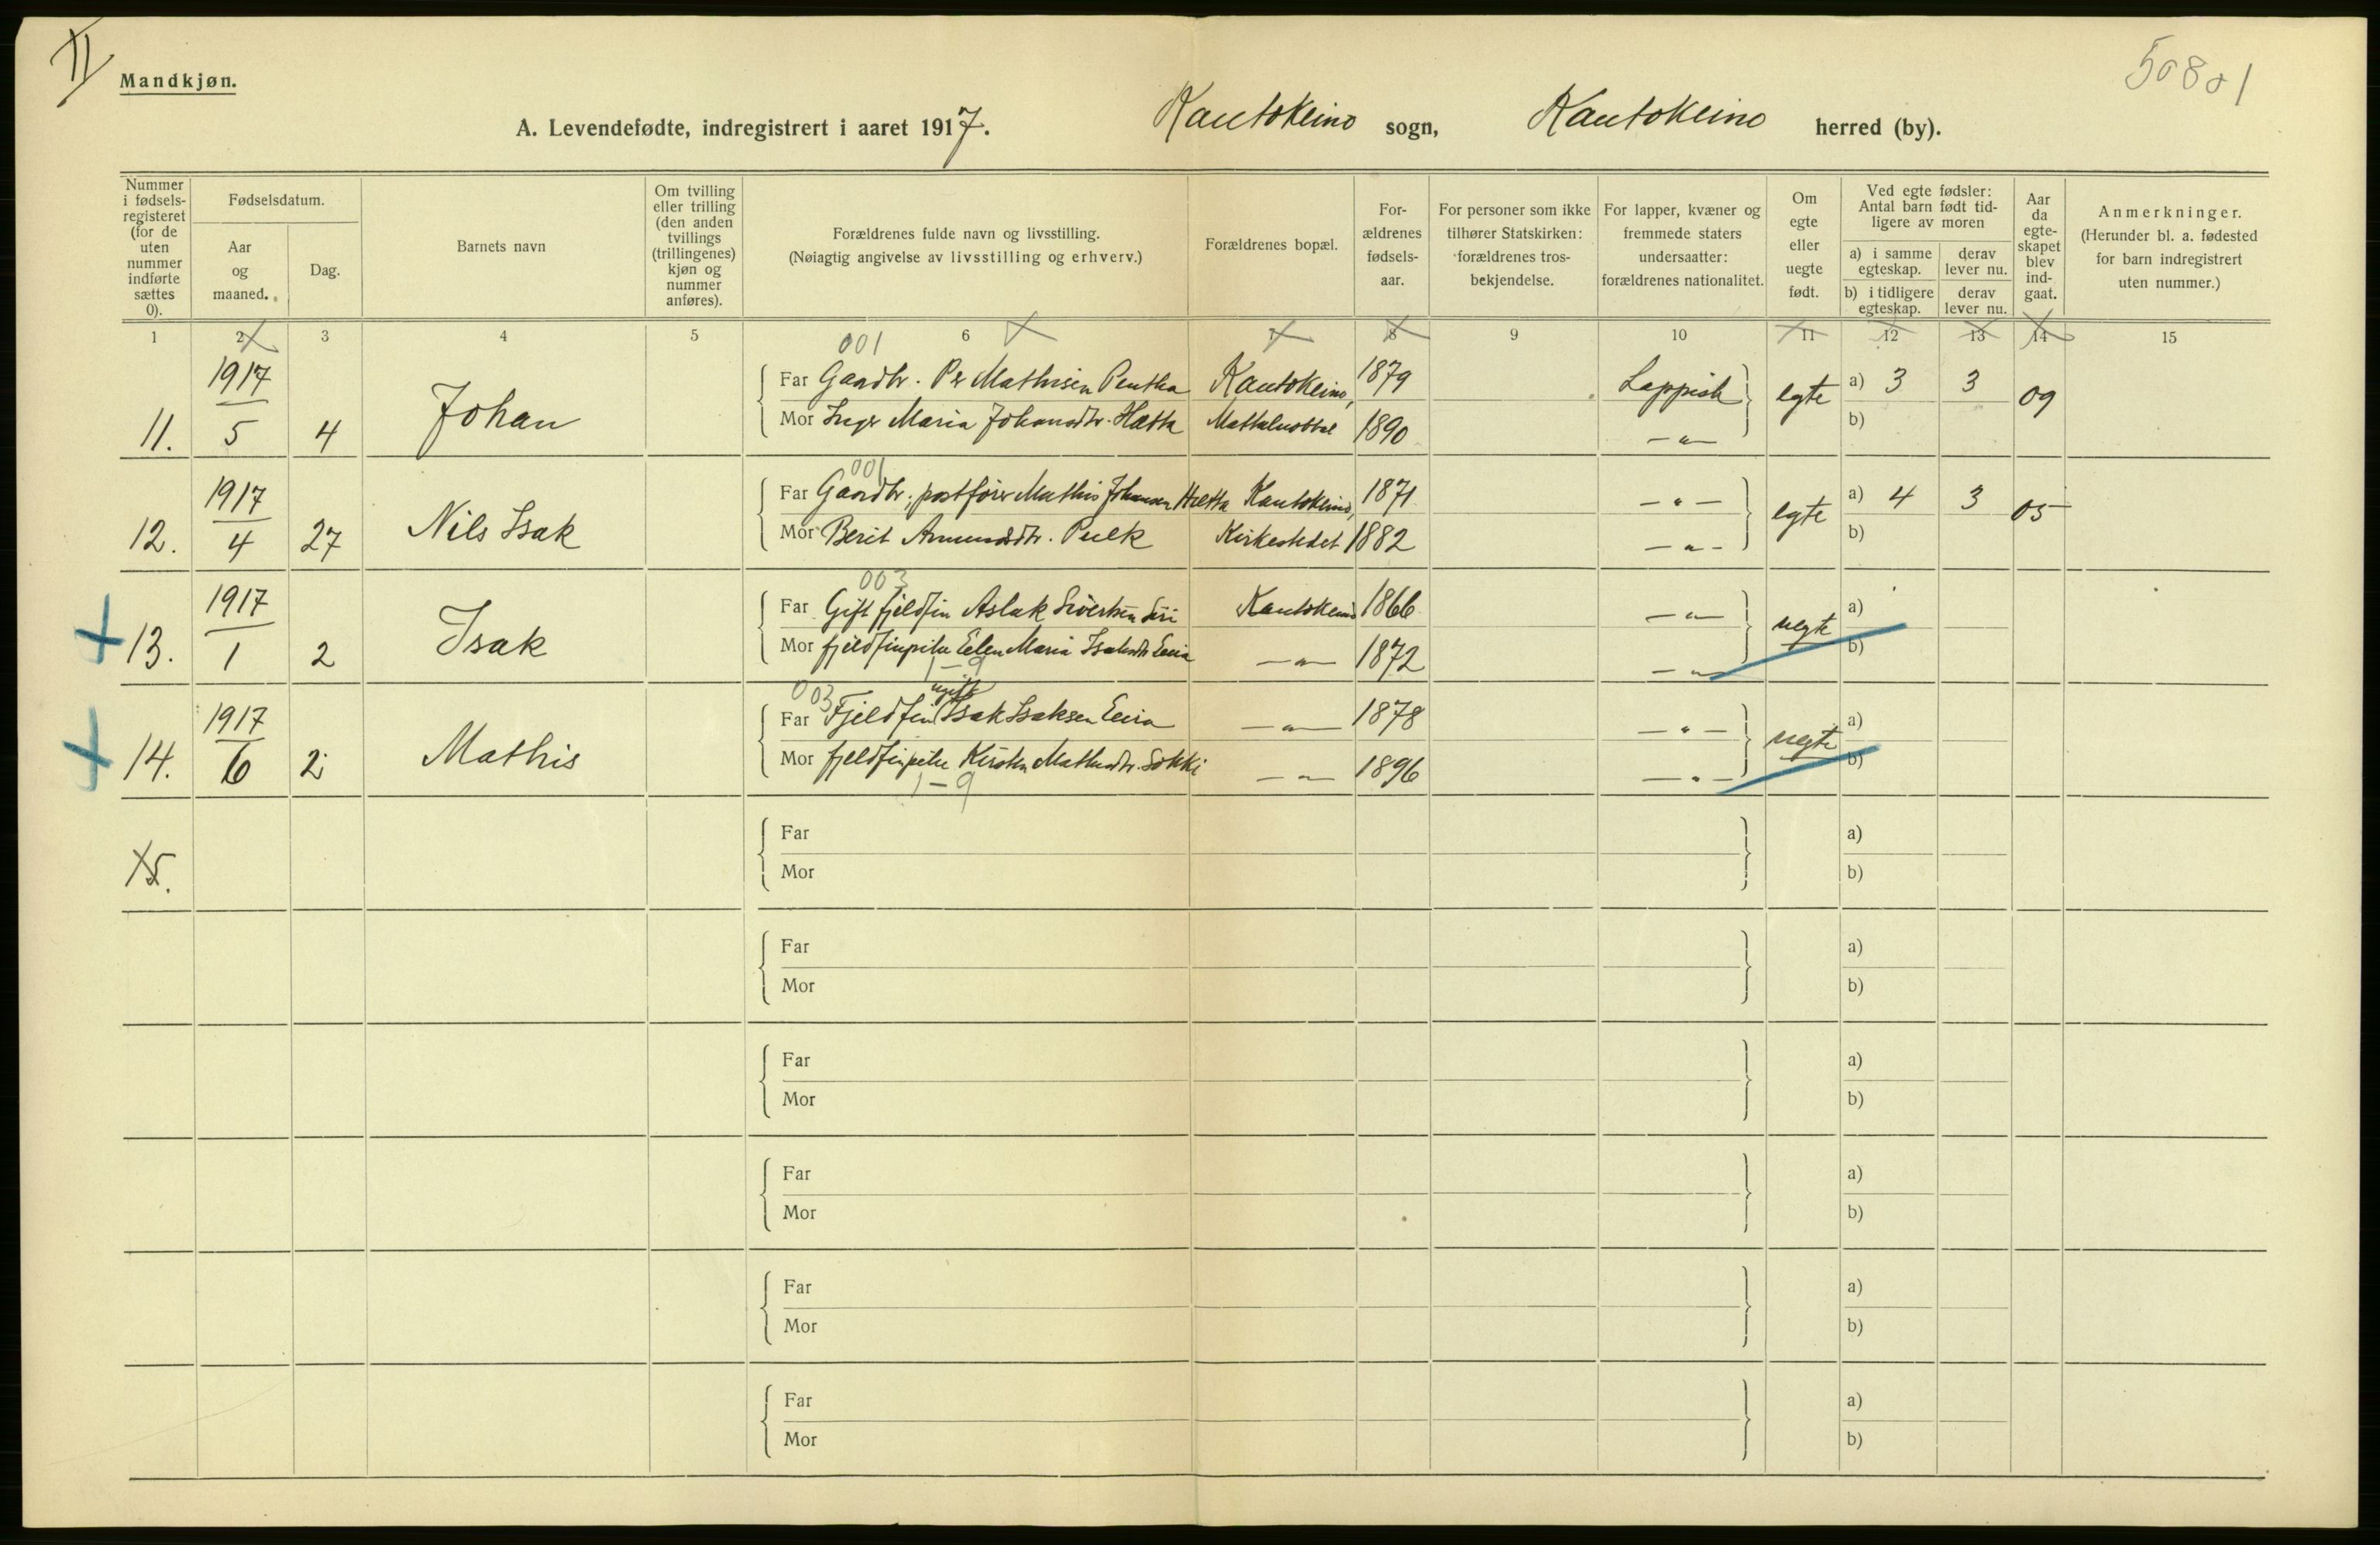 II
Mandkjøn.
50801
A. Levendefødte, indregistrert i aaret 1917. Kautokeino sogn, Kautokeino herred (by).
Nummer i fødsels-registeret (for de uten nummer indførte sættes 0).
Fødselsdatum.
Aar og maaned.
Dag.
Barnets navn
Om tvilling eller trilling (den anden tvillings (trillingenes) kjøn og nummer anføres).
Forældrenes fulde navn og livsstilling.
(Nøiagtig angivelse av livsstilling og erhverv.)
Forældrenes bopæl.
For-ældrenes fødsels-aar.
For personer som ikke tilhører Statskirken: forældrenes tros-bekjendelse.
For lapper, kvæner og fremmede staters undersaatter: forældrenes nationalitet.
Om egte eller uegte født.
Ved egte fødsler: Antal barn født tid-ligere av moren
a) i samme egteskap. derav lever nu.
b) i tidligere egteskap. derav lever nu.
Aar da egte-skapet blev ind-gaat.
Anmerkninger.
(Herunder bl. a. fødested for barn indregistrert uten nummer.)
1 2 3 4 5 6 7 8 9 10 11 12 13 14 15
001
11. 1917 5 4 Johan
Far Gaardbr. Per Mathisen Pentha Kautokeino, 1879 Lappisk egte a) 3 3 09
Mor Inger Maria Johansdtr. Hætta 1890 — „ — b)
001
12. 1917 4 27 Nils Isak
Far Gaardbr., postfører Mathis Johansen Hætta Kautokeino, 1871 — „ — egte a) 4 3 05
Mor Berit Amundsdtr. Pulk Kirkestedet 1882 — „ — b)
003
13. 1917 1 2 Isak
Far Gift fjeldfin Aslak Sivertsen Siri Kautokeino 1866 — „ — uegte a)
Mor fjeldfinpike Ellen Maria Isaksdtr Eira — „ — 1872 — „ — b)
1 – 9
003
14. 1917 6 2 Mathis
Far Fjeldfin ugift Isak Isaksen Eira — „ — 1878 — „ — uegte a)
Mor fjeldfinpike Kirsten Mathisdtr. Sokki — „ — 1896 — „ — b)
1 – 9
15.
Far a)
Mor b)
Far a)
Mor b)
Far a)
Mor b)
Far a)
Mor b)
Far a)
Mor b)
Far a)
Mor b)